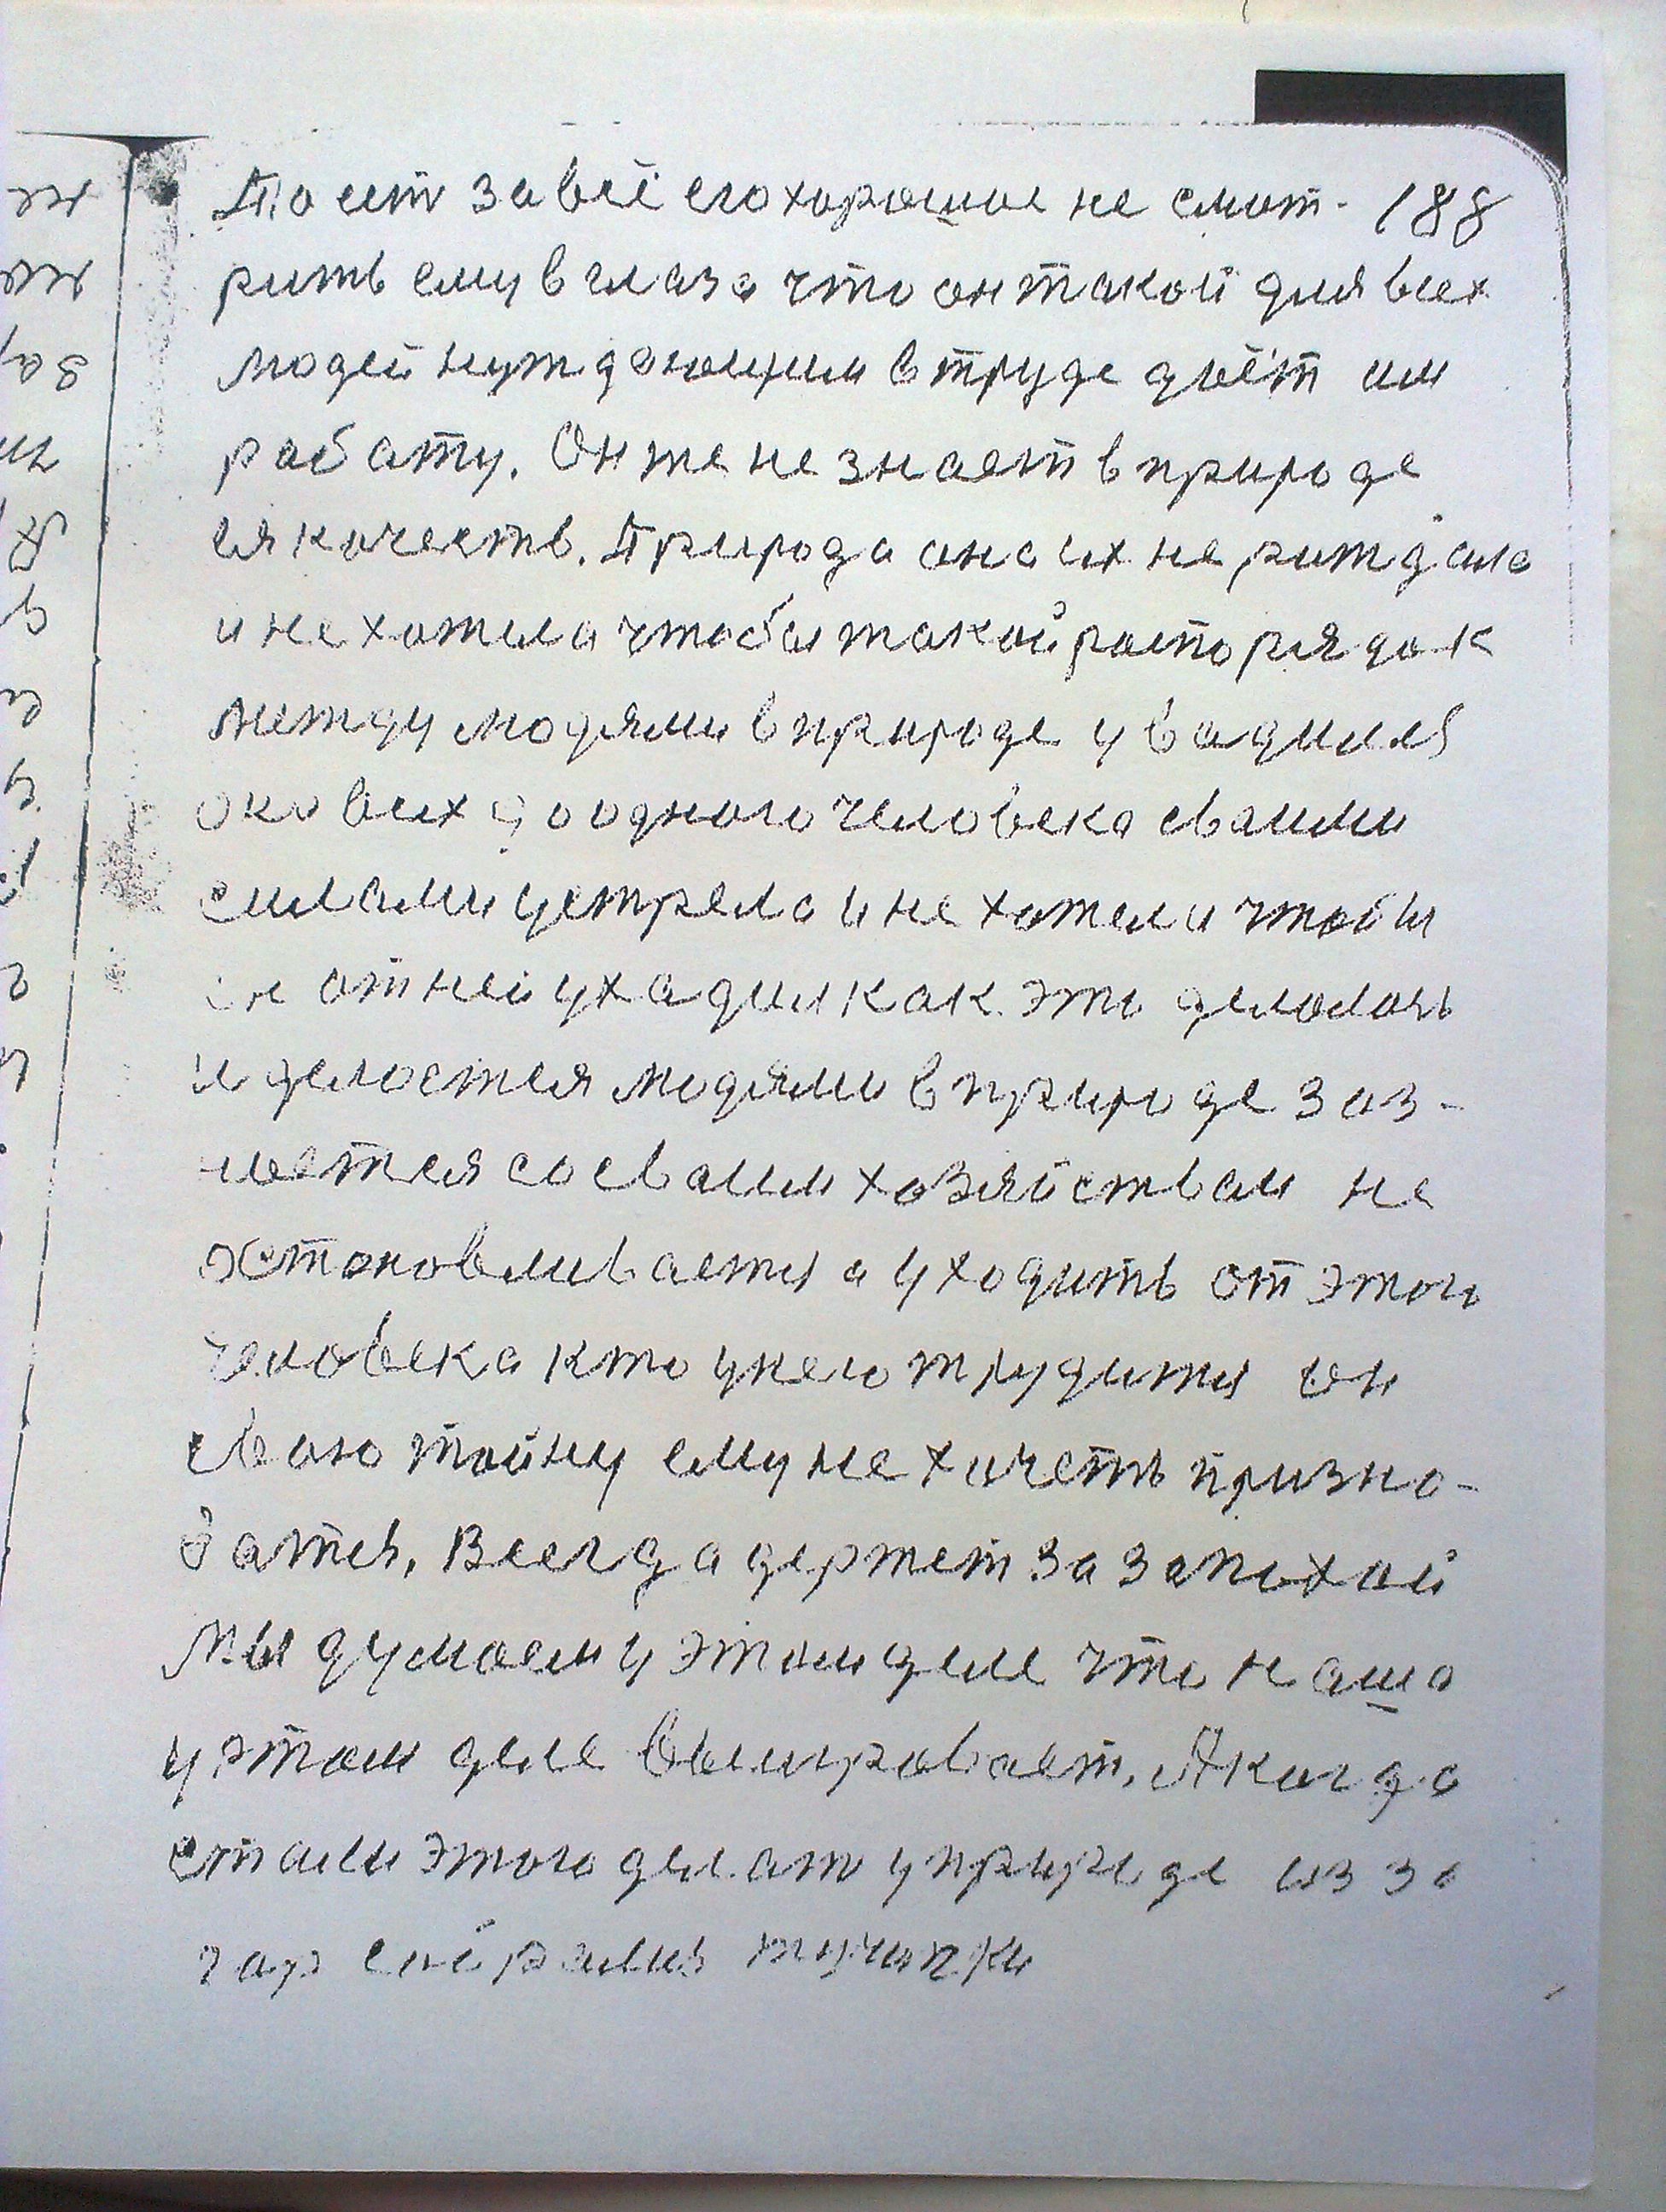 Поет за всё его хорошое не смот- 188
рить ему в глаза что он такой для всех
людей нуждающим в труде даёт им
работу. Он же не знает в природе
ея качеств. Природа она их не рождала
и не хотела чтобы такой распорядок
между людями в природе увадился
она всех до одного человека своими
силами устрела и не хотела чтобы
он от ней ухадил как это делалось
и делается людями в природе
со своим хозяйством не
остоновливается а уходить от этого
человека кто у него трудится он
свою тайну ему не хочеть призно-
ватся, Всегда держет за запохой
Мы думоем у этом деле что наша
у этом деле выигровает. А когда
стали этого делат у природе из за